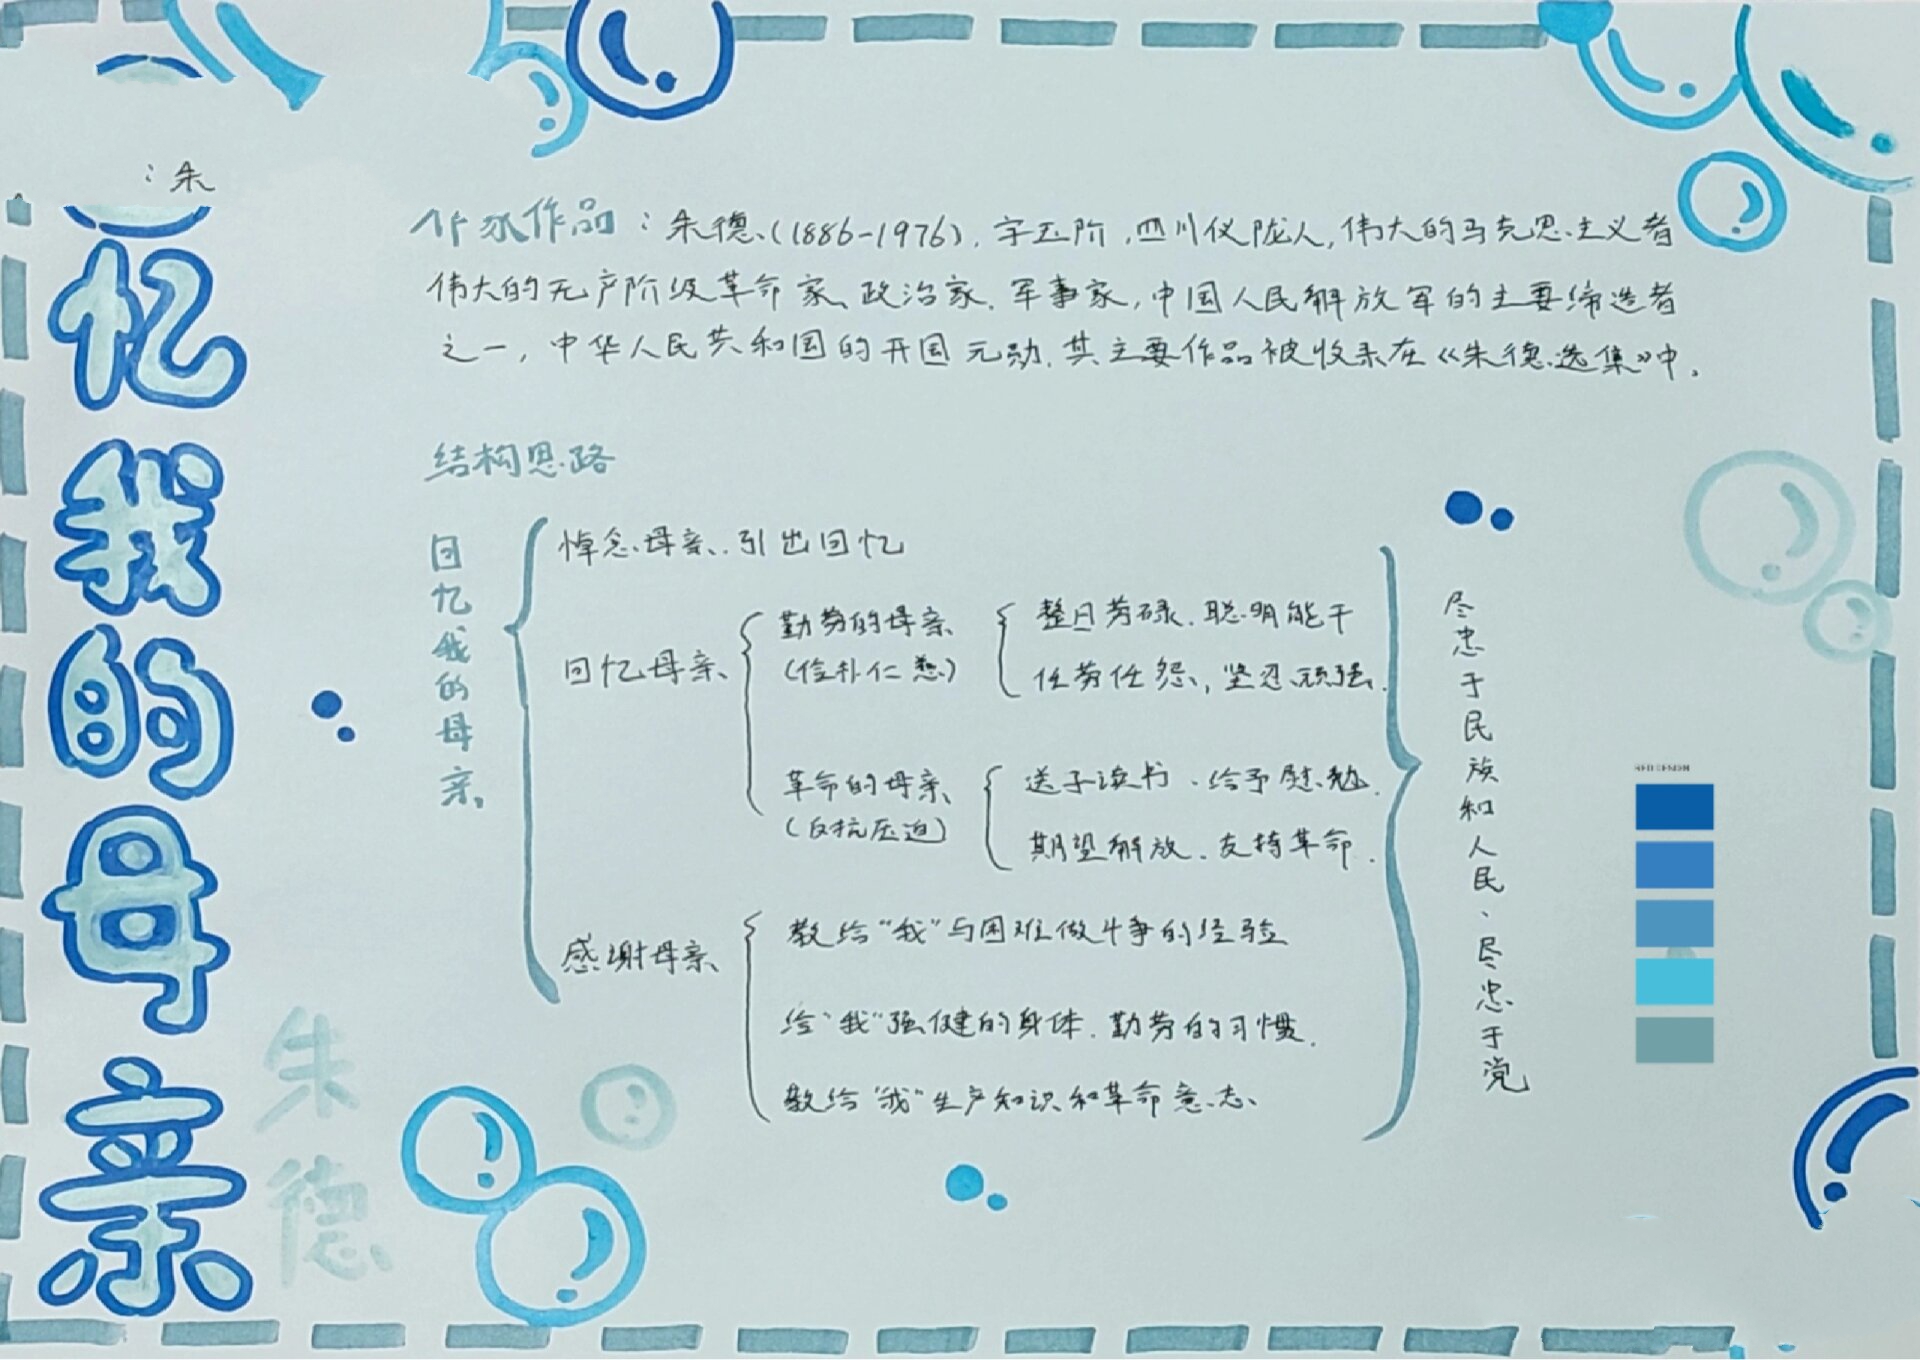 ：朱
忆我的母亲
朱德
作家作品：朱德（1886-1976），字玉阶，四川仪陇人，伟大的马克思主义者
伟大的无产阶级革命家、政治家、军事家，中国人民解放军的主要缔造者
之一，中华人民共和国的开国元勋，其主要作品被收录在《朱德选集》中。
结构思路
回忆我的母亲
悼念母亲、引出回忆
回忆母亲
勤劳的母亲
（俭朴仁慈）
整日劳碌、聪明能干
任劳任怨，坚忍顽强.
革命的母亲
（反抗压迫）
送子读书、给予慰勉.
期望解放、支持革命.
感谢母亲
教给“我”与困难做斗争的经验
给“我”强健的身体、勤劳的习惯.
教给“我”生产知识和革命意志
尽忠于民族和人民、尽忠于党